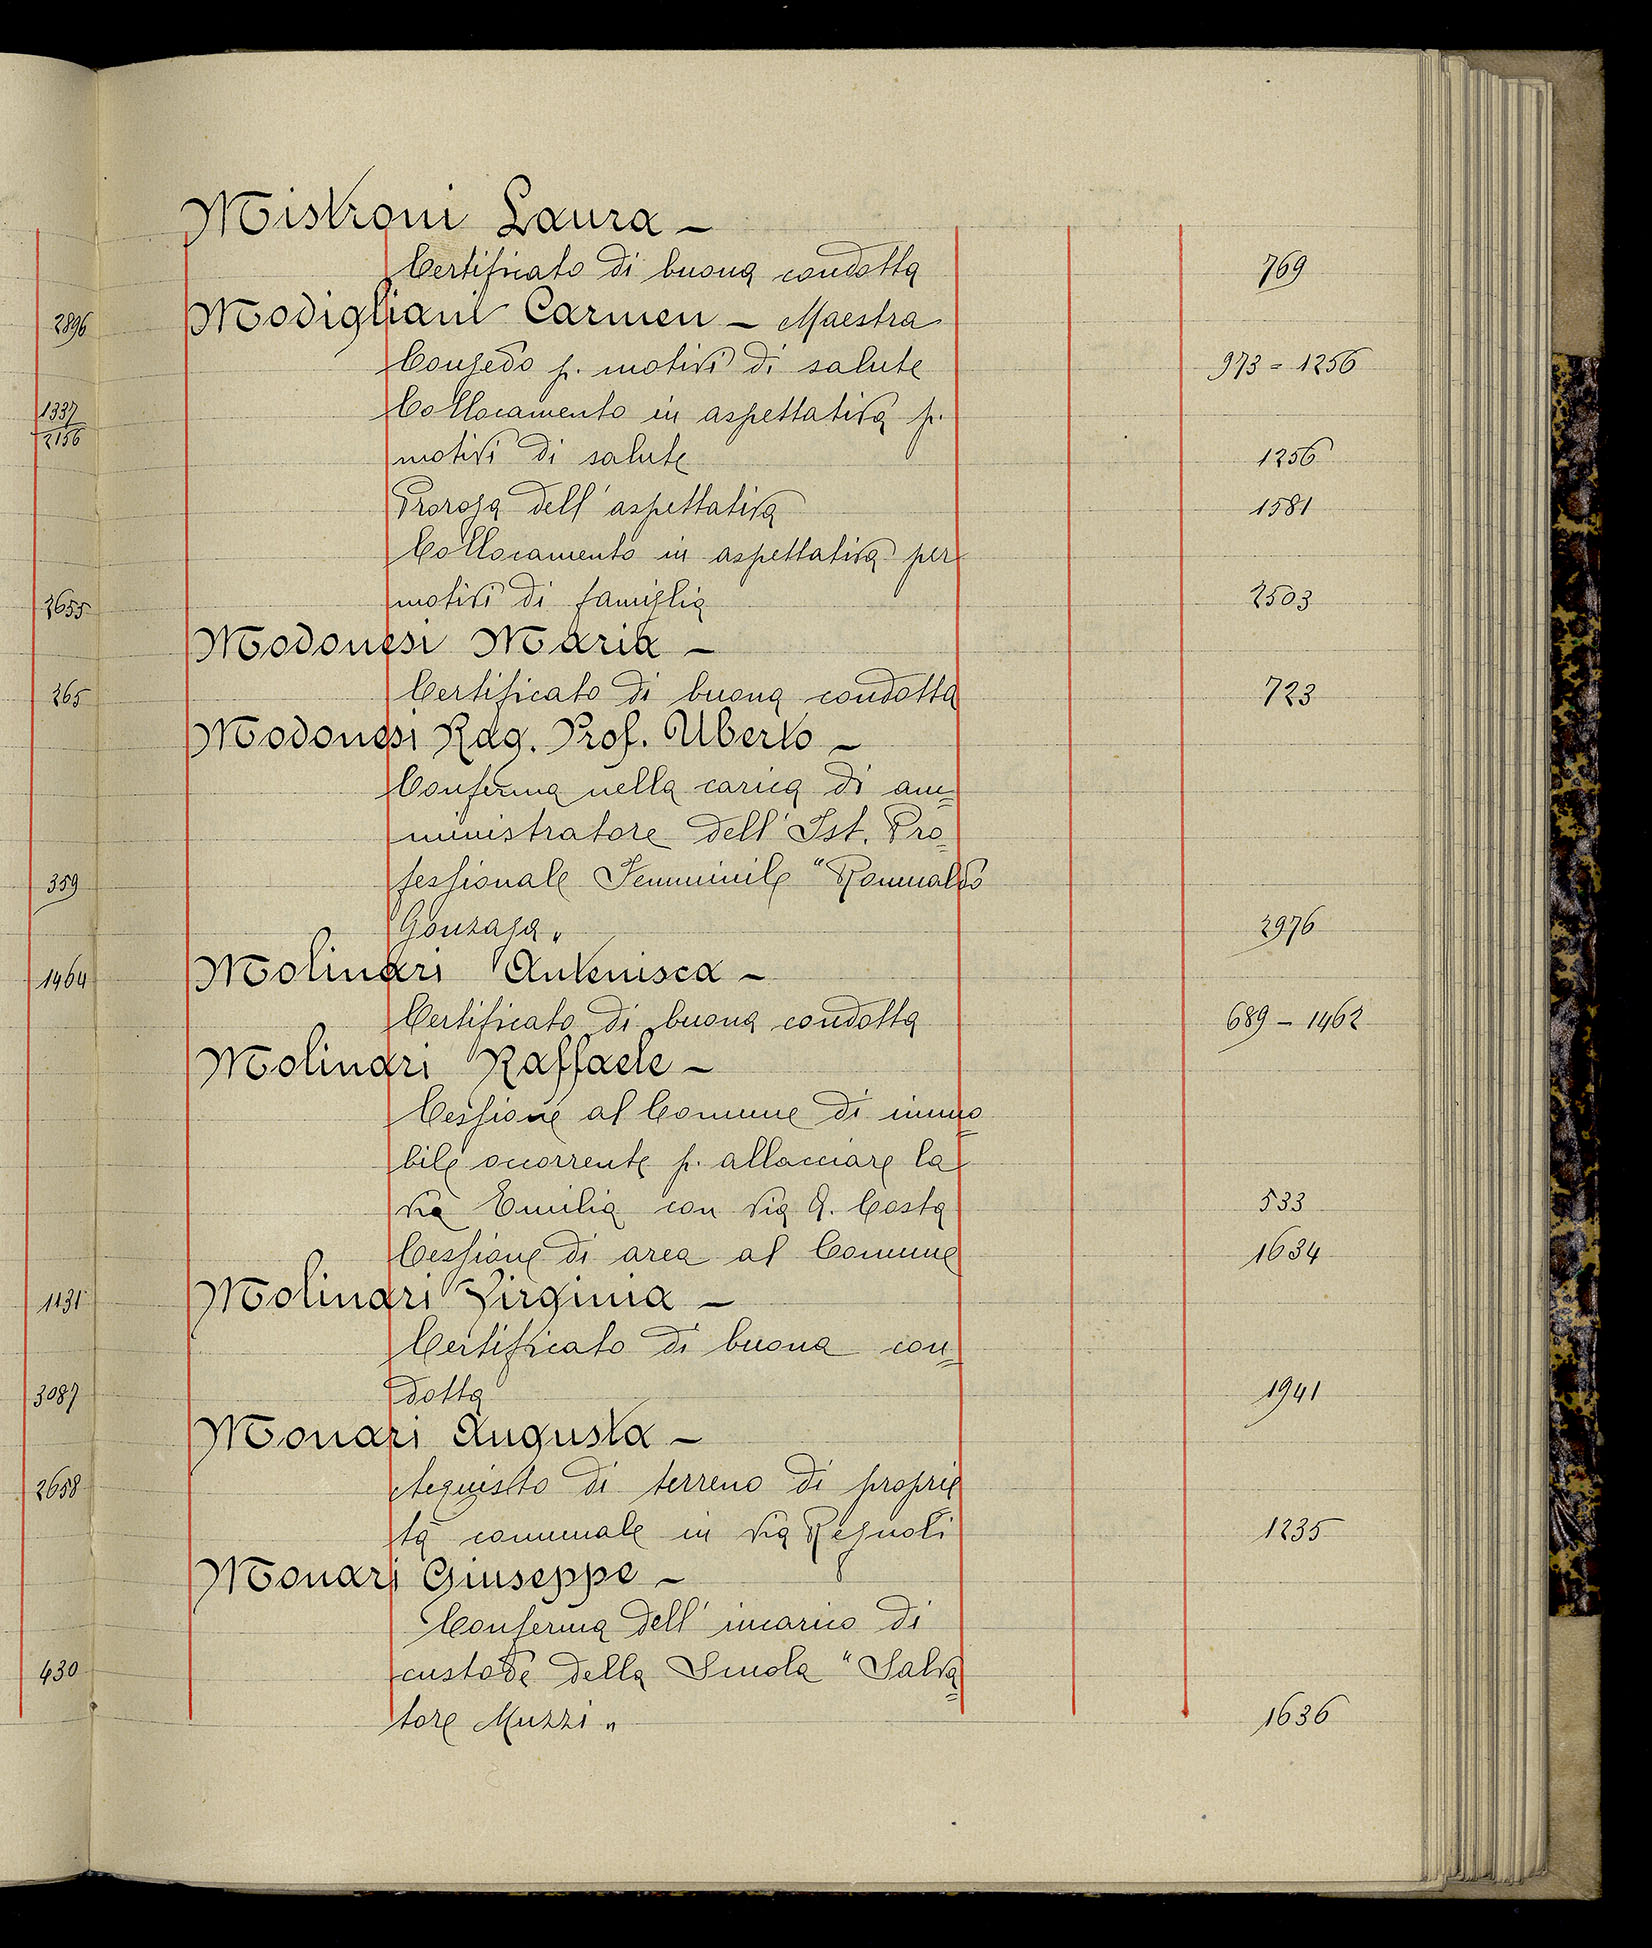 Mistroni Laura -
Certificato di buona condotta 769
2896 Modigliani Carmen - Maestra
Congedo p. motivi di salute 973 = 1256
1337
2156
Collocamento in aspettativa p.
motivi di salute 1256
Proroga dell'aspettativa 1581
Collocamento in aspettativa per
2655 motivi di famiglia 2503
Modonesi Maria -
265 Certificato di buona condotta 723
Modonesi Rag. Prof. Uberto -
Conferma nella carica di am=
ministratore dell'Ist. Pro=
359 fessionale Femminile "Romualdo
Gonzaga" 2976
1464 Molinari Antenisca -
Certificato di buona condotta 689 - 1462
Molinari Raffaele -
Cessione al Comune di immo=
bile occorrente p. allacciare la
via Emilia con via A. Costa 533
Cessione di area al Comune 1634
1131 Molinari Virginia -
Certificato di buona con=
3087 dotta 1941
Monari Augusta -
2658 Acquisto di terreno di proprie
tà comunale in via Regnoli 1235
Monari Giuseppe -
Conferma dell'incarico di
430 custode della Scuola "Salva=
tore Muzzi" 1636